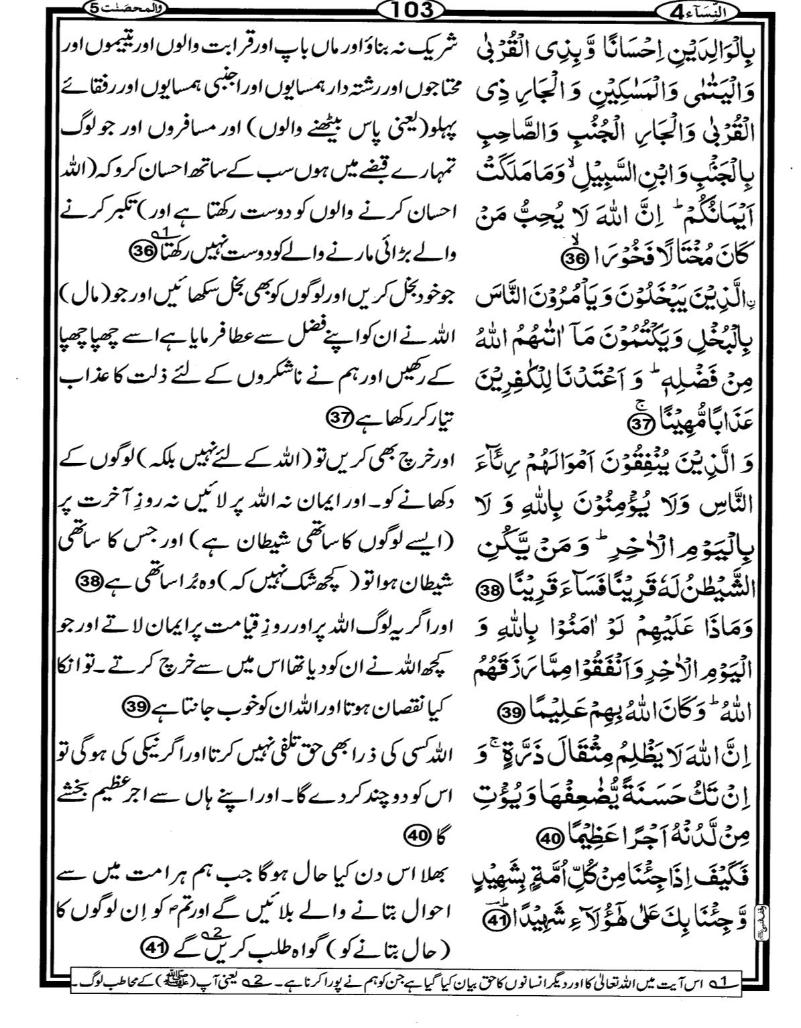 النِّسَآء 4
103
والمحصنٰت 5
بِالْوَالِدَيْنِ اِحْسَانًا وَّبِذِى الْقُرْبٰى
وَالْيَتٰمٰى وَالْمَسٰكِيْنِ وَالْجَارِ ذِى
الْقُرْبٰى وَالْجَارِ الْجُنُبِ وَالصَّاحِبِ
بِالْجَنْۢبِ وَابْنِ السَّبِيْلِ ۙ وَمَا مَلَكَتْ
اَيْمَانُكُمْ ؕ اِنَّ اللّٰهَ لَا يُحِبُّ مَنْ
كَانَ مُخْتَالًا فَخُوْرَا ۙ 36
ۨالَّذِيْنَ يَبْخَلُوْنَ وَيَاْمُرُوْنَ النَّاسَ
بِالْبُخْلِ وَيَكْتُمُوْنَ مَاۤ اٰتٰٮهُمُ اللّٰهُ
مِنْ فَضْلِهٖ ؕ وَ اَعْتَدْنَا لِلْكٰفِرِيْنَ
عَذَابًا مُّهِيْنًا ۚ 37
وَ الَّذِيْنَ يُنْفِقُوْنَ اَمْوَالَهُمْ رِئَآءَ
النَّاسِ وَلَا يُؤْمِنُوْنَ بِاللّٰهِ وَ لَا
بِالْيَوْمِ الْاٰخِرِ ؕ وَمَنْ يَّكُنِ
الشَّيْطٰنُ لَهٗ قَرِيْنًا فَسَآءَ قَرِيْنًا 38
وَمَاذَا عَلَيْهِمْ لَوْ اٰمَنُوْا بِاللّٰهِ وَ
الْيَوْمِ الْاٰخِرِ وَاَنْفَقُوْا مِمَّا رَزَقَهُمُ
اللّٰهُ ؕ وَكَانَ اللّٰهُ بِهِمْ عَلِيْمًا 39
اِنَّ اللّٰهَ لَا يَظْلِمُ مِثْقَالَ ذَرَّةٍ ۚ وَ
اِنْ تَكُ حَسَنَةً يُّضٰعِفْهَا وَيُؤْتِ
مِنْ لَّدُنْهُ اَجْرًا عَظِيْمًا 40
فَكَيْفَ اِذَا جِئْنَا مِنْ كُلِّ اُمَّةٍۭ بِشَهِيْدٍ
وَّجِئْنَا بِكَ عَلٰى هٰٓؤُلَاۤءِ شَهِيْدًا ؕ 41
شریک نہ بناؤ اور ماں باپ اور قرابت والوں اور یتیموں اور
محتاجوں اور رشتہ دار ہمسایوں اور اجنبی ہمسایوں اور رفقائے
پہلو (یعنی پاس بیٹھنے والوں) اور مسافروں اور جو لوگ
تمہارے قبضے میں ہوں سب کے ساتھ احسان کرو کہ (اللہ
احسان کرنے والوں کو دوست رکھتا ہے اور) تکبر کرنے
والے بڑائی مارنے والے کو دوست نہیں رکھتا 1؎ 36
جو خود بخل کریں اور لوگوں کو بھی بخل سکھائیں اور جو (مال)
اللہ نے ان کو اپنے فضل سے عطا فرمایا ہے اسے چھپا چھپا
کے رکھیں اور ہم نے ناشکروں کے لئے ذلت کا عذاب
تیار کر رکھا ہے 37
اور خرچ بھی کریں تو (اللہ کے لئے نہیں بلکہ) لوگوں کے
دکھانے کو۔ اور ایمان نہ اللہ پر لائیں نہ روزِ آخرت پر
(ایسے لوگوں کا ساتھی شیطان ہے) اور جس کا ساتھی
شیطان ہوا تو (کچھ شک نہیں کہ) وہ بُرا ساتھی ہے 38
اور اگر یہ لوگ اللہ پر اور روزِ قیامت پر ایمان لاتے اور جو
کچھ اللہ نے ان کو دیا تھا اس میں سے خرچ کرتے۔ تو انکا
کیا نقصان ہوتا اور اللہ ان کو خوب جانتا ہے 39
اللہ کسی کی ذرا بھی حق تلفی نہیں کرتا اور اگر نیکی کی ہوگی تو
اس کو دو چند کر دے گا۔ اور اپنے ہاں سے اجر عظیم بخشے
گا 40
بھلا اس دن کیا حال ہوگا جب ہم ہر امت میں سے
احوال بتانے والے بلائیں گے اور تم کو اِن لوگوں کا
(حال بتانے کو) گواہ طلب کریں گے 2؎ 41
1؎ اس آیت میں اللہ تعالیٰ کا اور دیگر انسانوں کا حق بیان کیا گیا ہے جن کو ہم نے پورا کرنا ہے۔ 2؎ یعنی آپ (ﷺ) کے مخاطب لوگ۔